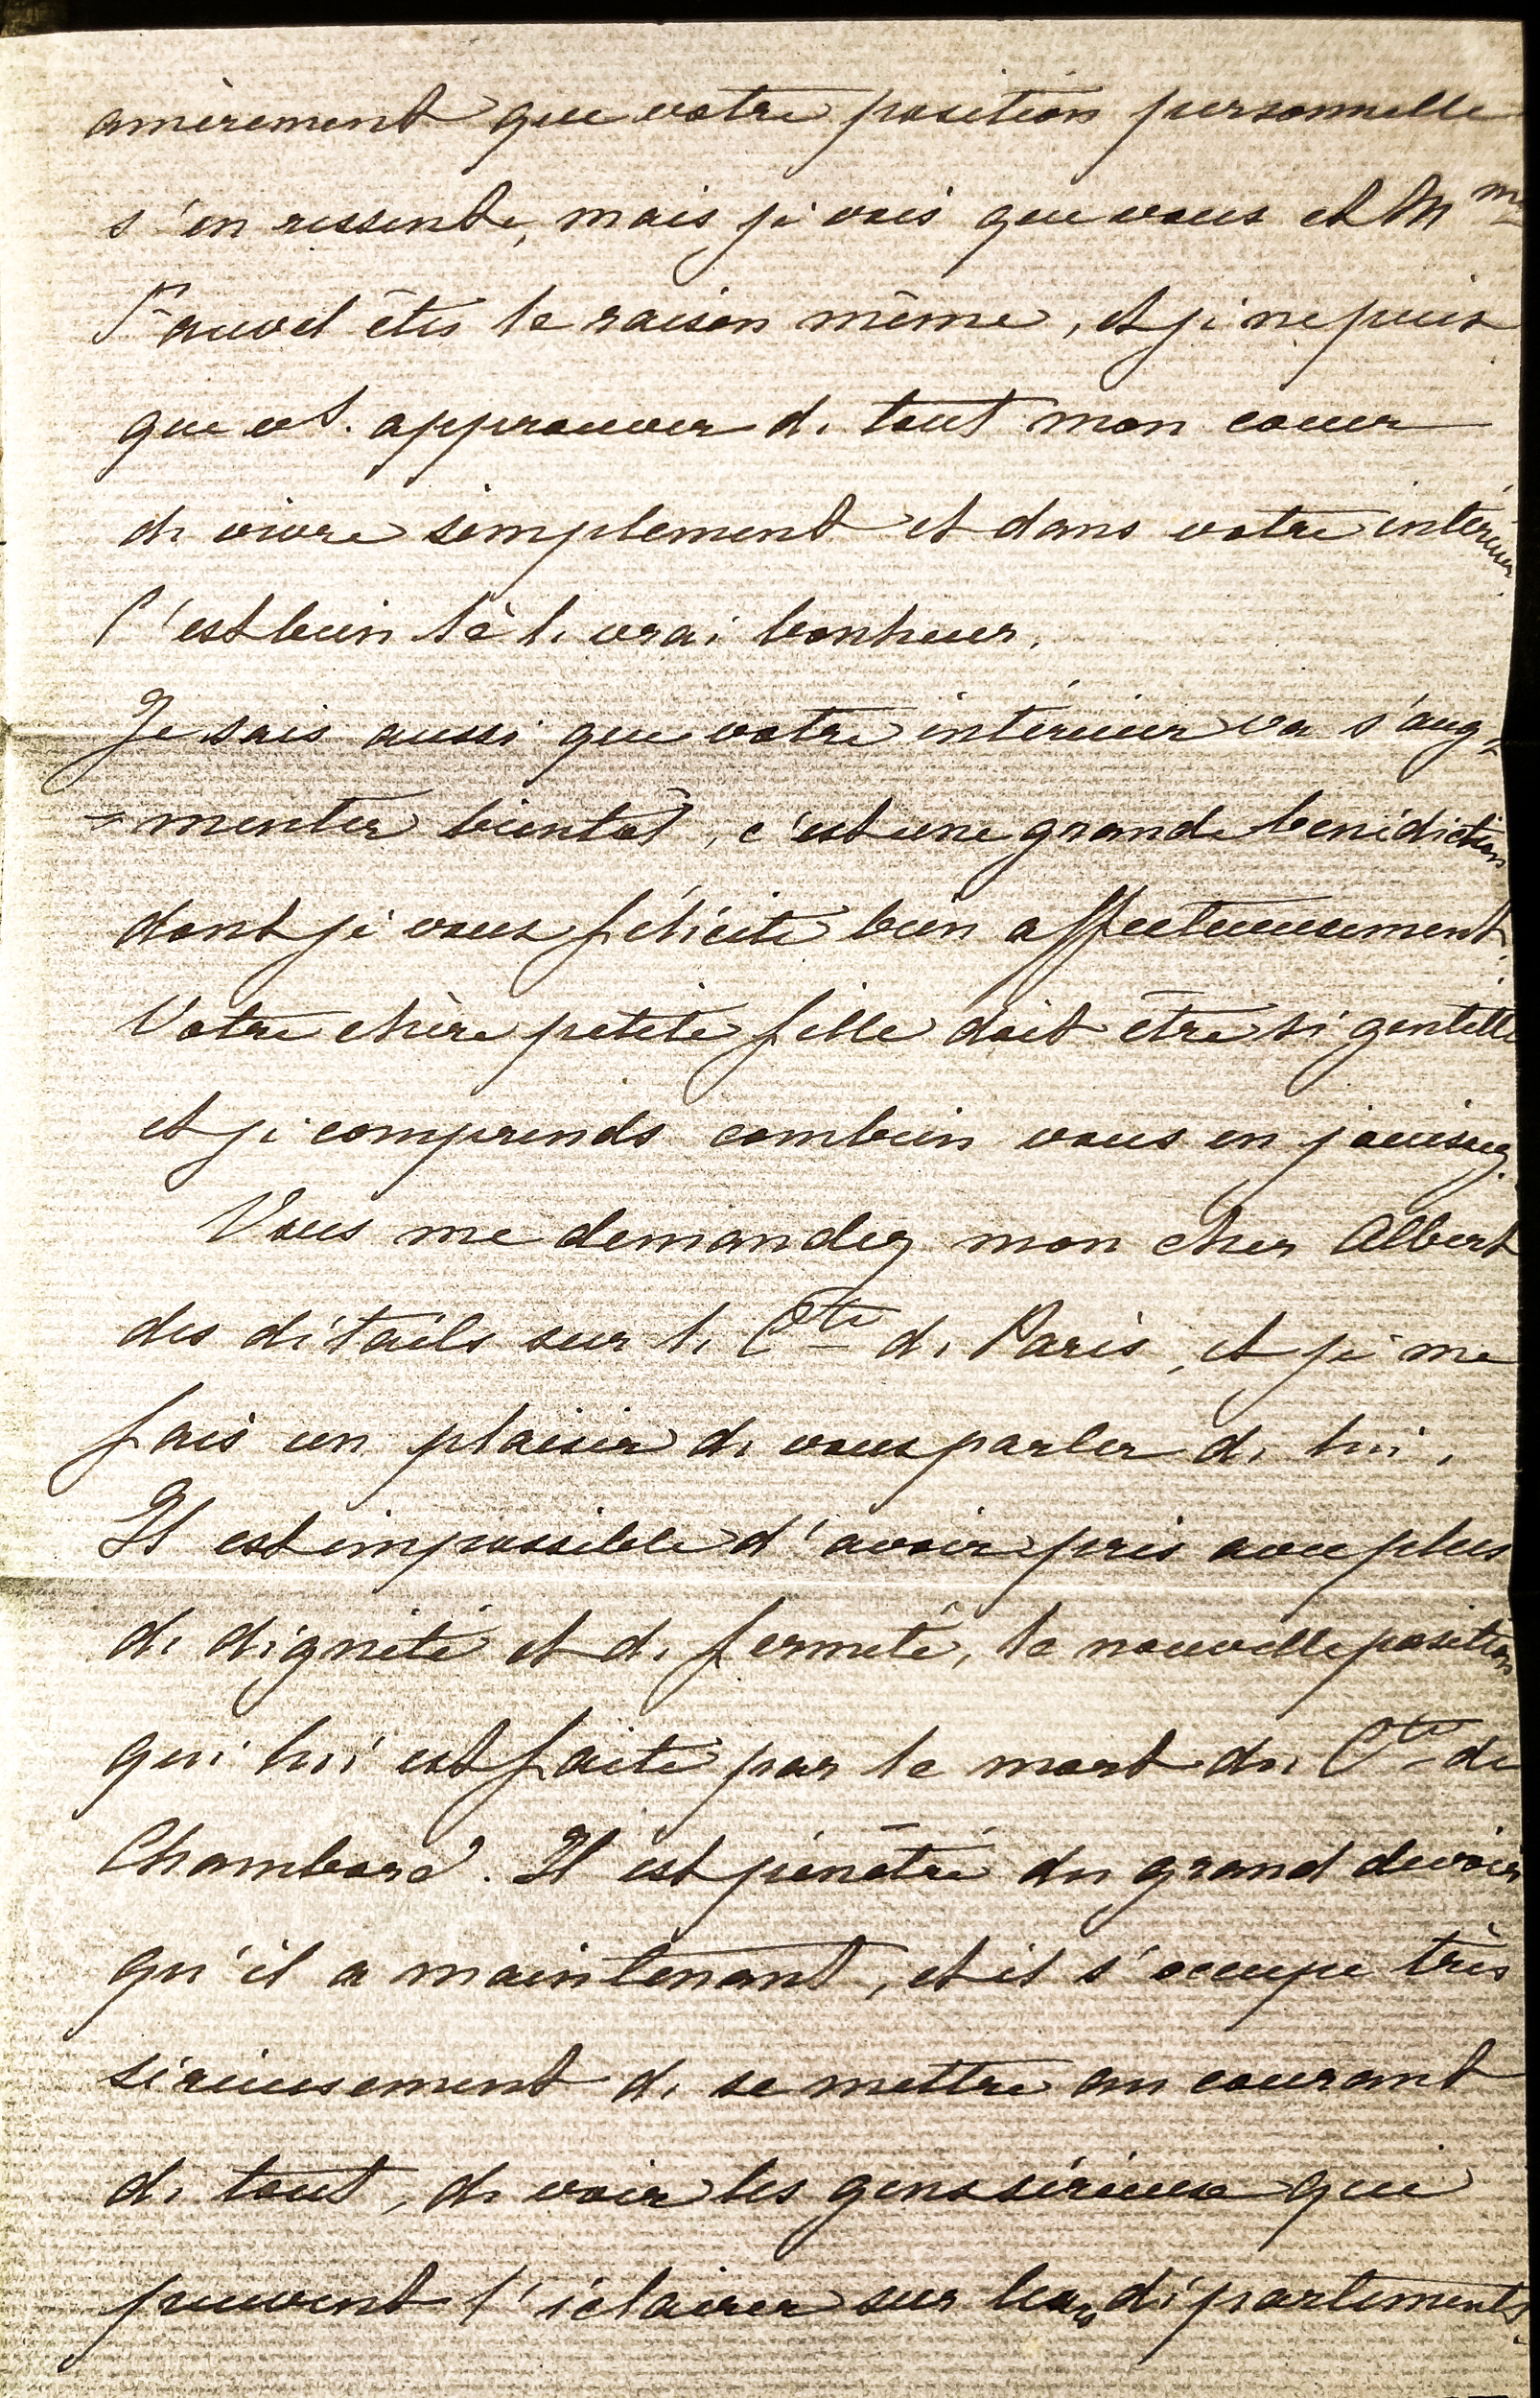 amèrement que votre position personnelle
s'en ressente, mais je vois que vous et Mme
Fauvel êtes la raison même, et je ne puis
que vs. approuver de tout mon cœur
de vivre simplement et dans votre intérieur.
C'est bien là le vrai bonheur.
Je sais aussi que votre intérieur va s'aug=
=menter bientôt, c'est une grande bénédiction
dont je vous félicite bien affectueusement.
Votre chère petite fille doit être si gentille
et je comprends combien vous en jouissez.
Vous me demandez mon cher Albert
des détails sur le Cte de Paris, et je me
fais un plaisir de vous parler de lui.
Il est impossible d'avoir pris avec plus
de dignité et de fermeté, la nouvelle position
qui lui est faite par la mort du Cte de
Chambord. Il est pénétré du grand devoir
qu'il a maintenant, et il s'occupe très
sérieusement de se mettre au courant
de tout, de voir les gens sérieux qui
peuvent l'éclairer sur leurs départements.